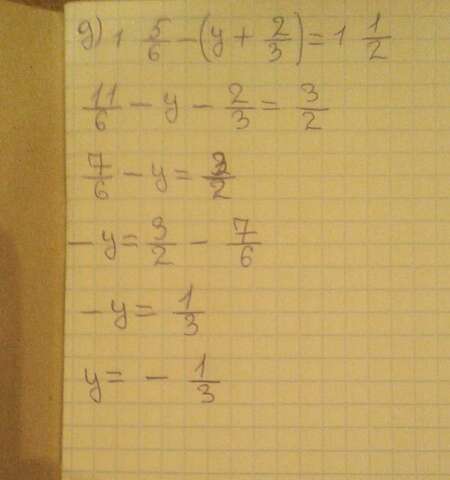 д) 1 5/6 - (y + 2/3) = 1 1/2
11/6 - y - 2/3 = 3/2
7/6 - y = 3/2
- y = 3/2 - 7/6
- y = 1/3
y = - 1/3